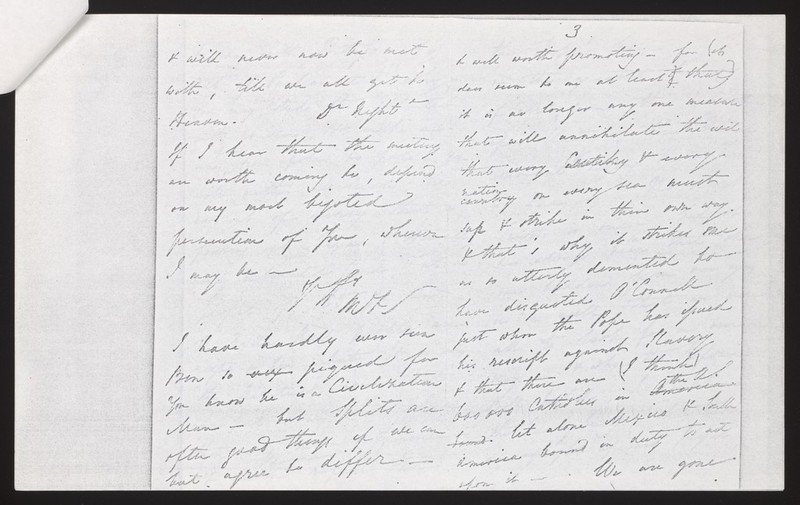 & will never now be met
with, till we all get to
Heaven. Dr Hight
If I hear that the meetings
are worth coming to, depend
on my most bigoted
persecution of You, wherever
I may be —
I have hardly ever seen
Ben so vex piqued for
You know he is a Civilization
Man — but splits are
often good things if we can
but agree to differ —
3
& well worth promoting — for (ob
does seem to me at least & that)
it is no longer any one measure
that will annihilate the evil
that every & every
nation country on every sea must
sap & strike in their own way.
& that's why it strikes me
as so utterly demented to
have disgusted O'Connell
just when the Pope has issued
his rescript against Slavery
& that there are (I think)
600 000 Catholics in America the U.S
let alone Mexico & South
America bound in duty to act
upon it — We are gone